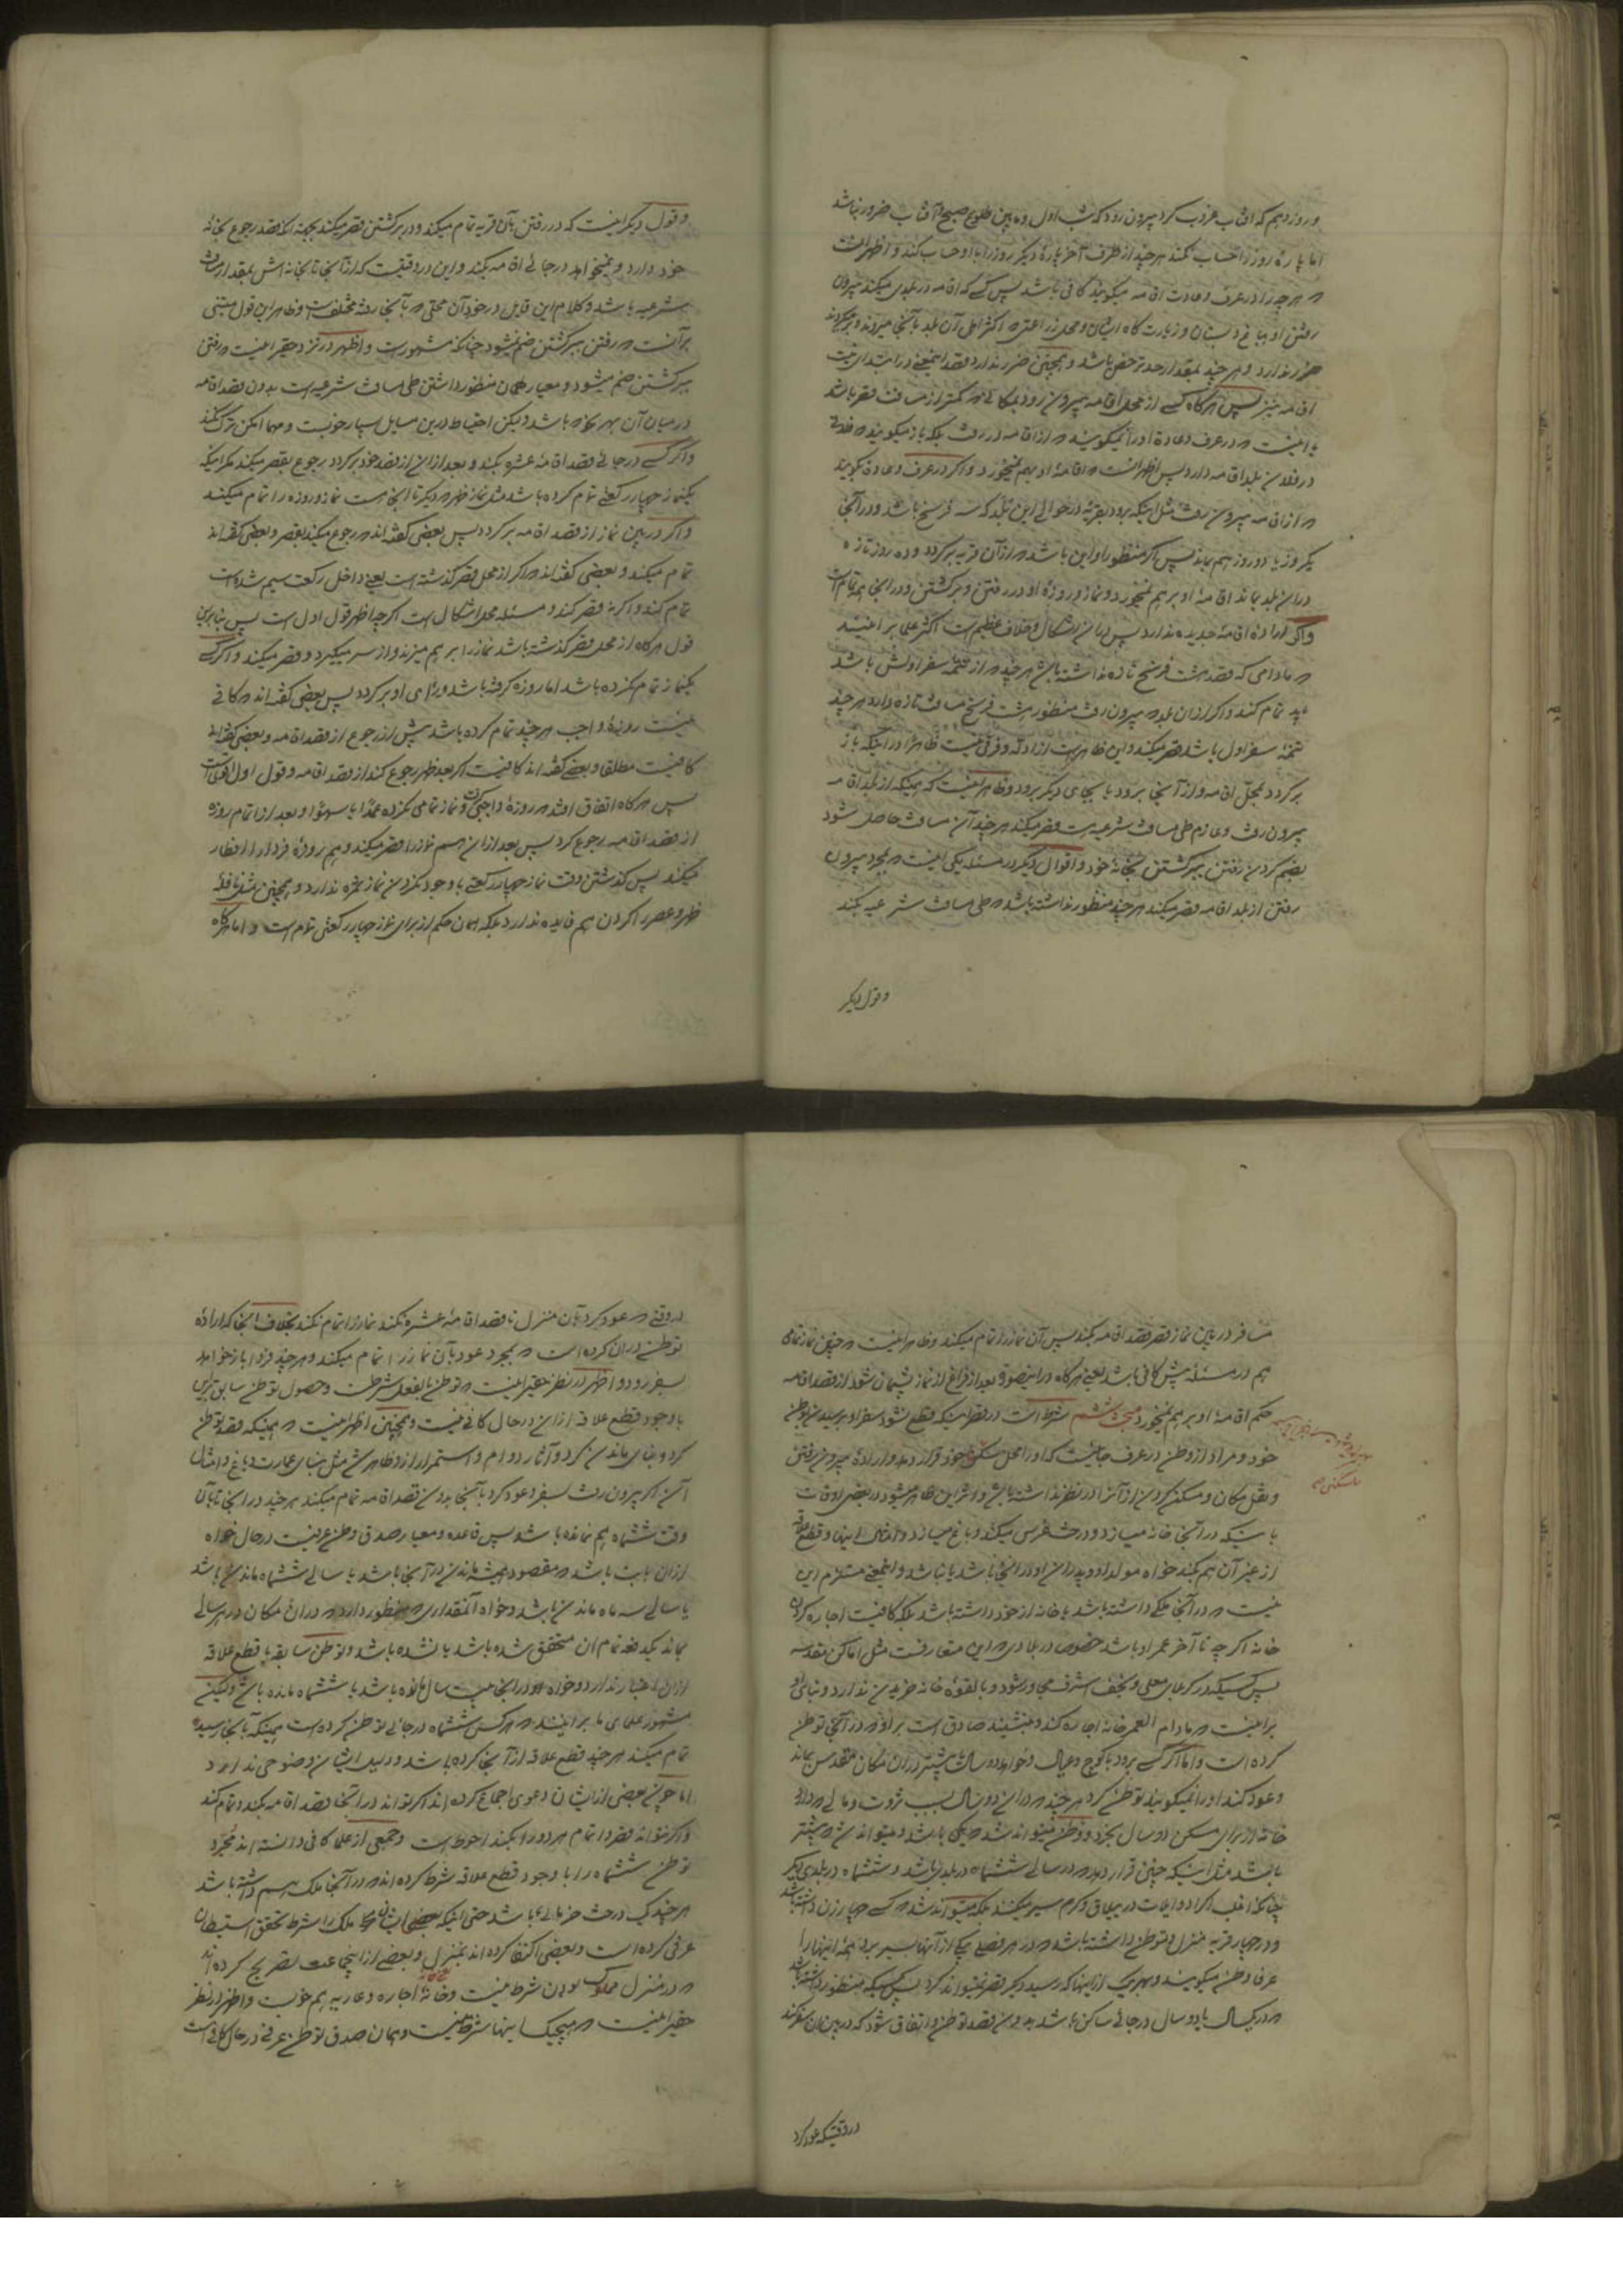 و روز دهم که آفتاب غروب کرد بیرون رود که شب اول و ما بین طلوع صبح و آفتاب ضرور نباشد
اما پاره روز را حساب نکند هر چند از طرف آخر پارهٔ دیگر روز را با او حساب کند و اظهر آنست
که هر چه را در عرف و عادت اقامه میگویند کافی باشد پس کسی که اقامه در بلدی میکند بیرون
رفتن او بباغ و بستان و زیارت گاه ایشان و محل زراعتی که اکثر اهل آن بلد بآنجا میروند و بر میگردند
ضرر ندارد و هر چند بمقدار حد ترخص باشد و همچنین ضرر ندارد قصد اینمعنی در ابتدای نیت
اقامه نیز پس هر گاه کسی از محل اقامه بیرون رود بمکانی که کمتر از مسافت قصر باشد
یا اینست که در عرف و عادة او را نمیگویند که از اقامه در رفت بلکه باز میگویند که فلانی
در فلان بلد اقامه دارد پس اظهر آنست که اقامهٔ او بهم نمیخورد و اگر در عرف و عادة بگویند
که از اقامه بیرون رفت مثل اینکه برود بقریهٔ در حوالی این بلد که سه فرسخ باشد و در آنجا
یکروز یا دو روز هم بماند پس اگر منظور او این باشد که از آن قریه بر گردد و ده روز تازه
در این بلد بماند اقامهٔ او بر هم نمیخورد و نماز و روزهٔ او در رفتن و بر گشتن و در اینجا همه تمام است
و اگر ارادهٔ اقامهٔ جدیده ندارد پس در این اشکال و خلاف عظیم است اکثر علما بر اینند
که مادامی که قصد هشت فرسخ تازه نداشته باشد هر چند که از تتمهٔ سفر اولش باشد
باید تمام کند و اگر از آن بلد که بیرون رفت منظورش هشت فرسخ مسافت تازه دارد هر چند
تتمهٔ سفر اول باشد قصر میکند و این ظاهر است از ادله و فرقی نیست ظاهراً در اینکه باز
بر گردد بمحل اقامه و از آنجا برود یا بجای دیگر برود و ظاهر اینست که همینکه از بلد اقامه
بیرون رفت و عازم طی مسافت شرعیه است قصر میکند هر چند آن مسافت حاصل شود
بضم کردن رفتن ببر گشتن بخانهٔ خود و اقوال دیگر در مسئله یکی اینست که بمجرد بیرون
رفتن از بلد اقامه قصر میکند هر چند منظور نداشته باشد که طی مسافت شرعیه بکند
و قول دیگر
و قول دیگر اینست که در رفتن بآن قریه تمام میکند و در بر گشتن قصر میکند بجهة آنکه قصد رجوع بخانهٔ
خود دارد و نمیخواهد در جائی اقامه بکند و این در وقتیست که از آنجا تا بخانه اش بمقدار مسافت
شرعیه باشد و کلام این قایل در خود آن محلی که بآنجا رفته مختلف است و ظاهر این قول مبتنی
بر آنست که رفتن ببر گشتن ضم نمیشود چنانکه مشهورست و اظهر در نزد حقیر اینست که رفتن
ببر گشتن ضم میشود و معیار همان منظور داشتن طی مسافت شرعیه است بدون قصد اقامه
در میان آن بهر نحو که باشد و لیکن احتیاط درین مسایل بسیار خوبست و مهما امکن ترک نکند
و اگر کسی در جائی قصد اقامهٔ عشره بکند و بعد از این از قصد خود بر گردد رجوع بقصر میکند مگر اینکه
یکنماز چهار رکعتی تمام کرده باشد مثل نماز ظهر که دیگر تا اینجا است نماز و روزه را تمام میکند
و اگر در بین نماز از قصد اقامه بر گردد پس بعضی گفته اند که رجوع میکند بقصر و بعضی گفته اند
تمام میکند و بعضی گفته اند که اگر از محل قصر گذشته است یعنی داخل رکعت سیم شده است
تمام کند و اگر نه قصر کند و مسئله محل اشکال است اگر چه اظهر قول اول است پس بنا برین
قول هر گاه از محل قصر گذشته باشد نماز را بر هم میزند و از سر میگیرد و قصر میکند و اگر کسی
یکنماز تمام نکرده باشد اما روزه گرفته باشد و رأی او بر گردد پس بعضی گفته اند که کافی
نیست روزهٔ واجب هر چند تمام کرده باشد پیش از رجوع از قصد اقامه و بعضی گفته اند
کافیست مطلقا و بعضی گفته اند کافیست اگر بعد ظهر رجوع کند از قصد اقامه و قول اول اقوی است
پس هر گاه اتفاق افتد که روزهٔ واجبی گرفت و نماز تمامی نکرده عمداً یا سهواً و بعد از اتمام روزه
از قصد اقامه رجوع کرد پس بعد از این هم نماز را قصر میکند و هم روزهٔ فردا را افطار
میکند پس گذشتن وقت نماز چهار رکعتی با وجود نکردن نماز ثمره ندارد و همچنین مثل نافلهٔ
ظهر و عصر را کردن هم فایده ندارد بلکه همان حکم از برای نماز چهار رکعتی تمام است و اما هر گاه
مسافر در بین نماز قصر قصد اقامه بکند پس آن نماز را تمام میکند و ظاهر اینست که چنین نماز تمامی
هم در مسئله پیش کافی باشد یعنی هر گاه در اینصورة بعد از فراغ از نماز پشیمان شود از قصد اقامه
حکم اقامهٔ او بر هم نمیخورد مبحث ششم شرط است در قصر اینکه قطع نشود سفر او برسیدن بوطن
خود و مراد از وطن در عرف جائیست که او را محل سکنی خود قرار دهد و ارادهٔ بیرون رفتن
و نقل مکان و مسکن کردن از آنرا در نظر نداشته باشد و اثر این ظاهر میشود در بعضی اوقات
باینکه در آنجا خانه میسازد و درخت غرس میکند و باغ میسازد و امثال اینها و قطع علاقه
از غیر آن هم بکند خواه مولد او و پدران او در آنجا باشد یا نباشد و اینمعنی مستلزم این
نیست که در آنجا ملکی داشته باشد یا خانه از خود داشته باشد بلکه کافیست اجاره کردن
خانه اگر چه تا آخر عمر او باشد خصوص در بلادی که این متعارفست مثل اماکن مقدسه
پس کسیکه در کربلای معلی و نجف اشرف مجاور شود و بالقوهٔ خانه خریدن ندارد و بنای او
بر اینست که مادام العمر خانه اجاره کند و بنشیند صادق است بر او که در آنجا توطن
کرده است و اما اگر کسی برود با کوچ و عیال و خواهد دو سال یا بیشتر در آن مکان مقدس بماند
و عود کند او را نمیگویند توطن کرد هر چند که در این دو سال بسبب ثروت و مالی که دارد
خانه از برای مسکن دو سال بخرد و وطن میتواند شد که یکی باشد و میتواند شد که بیشتر
باشد مثل اینکه چنین قرار دهد که در سالی ششماه در بلدی باشد و ششماه در بلدی دیگر
چنانکه اغلب اکراد و ایلات در ییلاق و گرم سیر میکنند بلکه میتواند شد که کسی چهار زن داشته باشد
و در چهار قریه منزل و توطن داشته باشد که در هر فصلی یکی از آنها بسر برد همهٔ اینها را
عرفا وطن میگویند و بهر یک از اینها که رسید دیگر قصر نمیتواند کرد پس کسیکه منظور داشته باشد
که در یکسال یا دو سال در جائی ساکن باشد بدون قصد توطن و اتفاق شود که در بین آن سفر کند
در وقتیکه عود کرد
در وقتی که عود کرد بآن منزل تا قصد اقامهٔ عشره نکند نماز را تمام نکند بخلاف آنجا که ارادهٔ
توطن در آن کرده است که بمجرد عود بآن نماز را تمام میکند و هر چند فردا باز خواهد
بسفر رود و اظهر در نظر حقیر اینست که توطن بالفعل شرطست و حصول توطن سابق برین
با وجود قطع علاقه از این در حال کافی نیست و همچنین اظهر اینست که همینکه قصد توطن
کرد و بنای ماندن کرد و آثار دوام و استمرار از او ظاهر شد مثل بنای عمارت و باغ و امثال
آن اگر بیرون رفت بسفر و عود کرد بآنجا بدون قصد اقامه تمام میکند هر چند در آنجا تا بآن
وقت ششماه هم نمانده باشد پس قاعده و معیار صدق وطن عرفیست در حال خواه
از آن بابت باشد که مقصود همیشه ماندن در آنجا باشد یا سالی ششماه ماندن باشد
یا سالی سه ماه ماندن باشد و خواه آنمقداری که منظور دارد که در آن مکان در هر سالی
بماند یکدفعه تمام آن متحقق شده باشد یا نشده باشد و توطن سابقه با قطع علاقه
از آن اعتبار ندارد و خواه در آنجا بیست سال مانده باشد یا ششماه مانده باشد و لیکن
مشهور علمای ما بر اینند که هر کس ششماه در جائی توطن کرده است همینکه بآنجا رسید
تمام میکند هر چند قطع علاقه از آنجا کرده باشد و دلیل ایشان وضوحی ندارد
اما چون بعضی از ایشان دعوی اجماع کرده اند اگر تواند در آنجا قصد اقامه بکند و تمام کند
و اگر نتواند قصر و اتمام هر دو را بکند احوط است و جمعی از علما کافی دانسته اند مجرد
توطن ششماه را با وجود قطع علاقه شرط کرده اند که در آنجا ملک هم داشته باشد
هر چند یک درخت خرمائی باشد حتی اینکه بعضی ایشان ملک را شرط تحقق استیطان
عرفی کرده است و بعضی اکتفا کرده اند بمنزل و بعضی از این جماعت تصریح کرده اند
که در منزل مملوک بودن شرط نیست و خانهٔ اجاره و عاریه هم خوبست و اظهر در نظر
حقیر اینست که هیچیک اینها شرط نیست و همان صدق توطن عرفی در حال کافی است